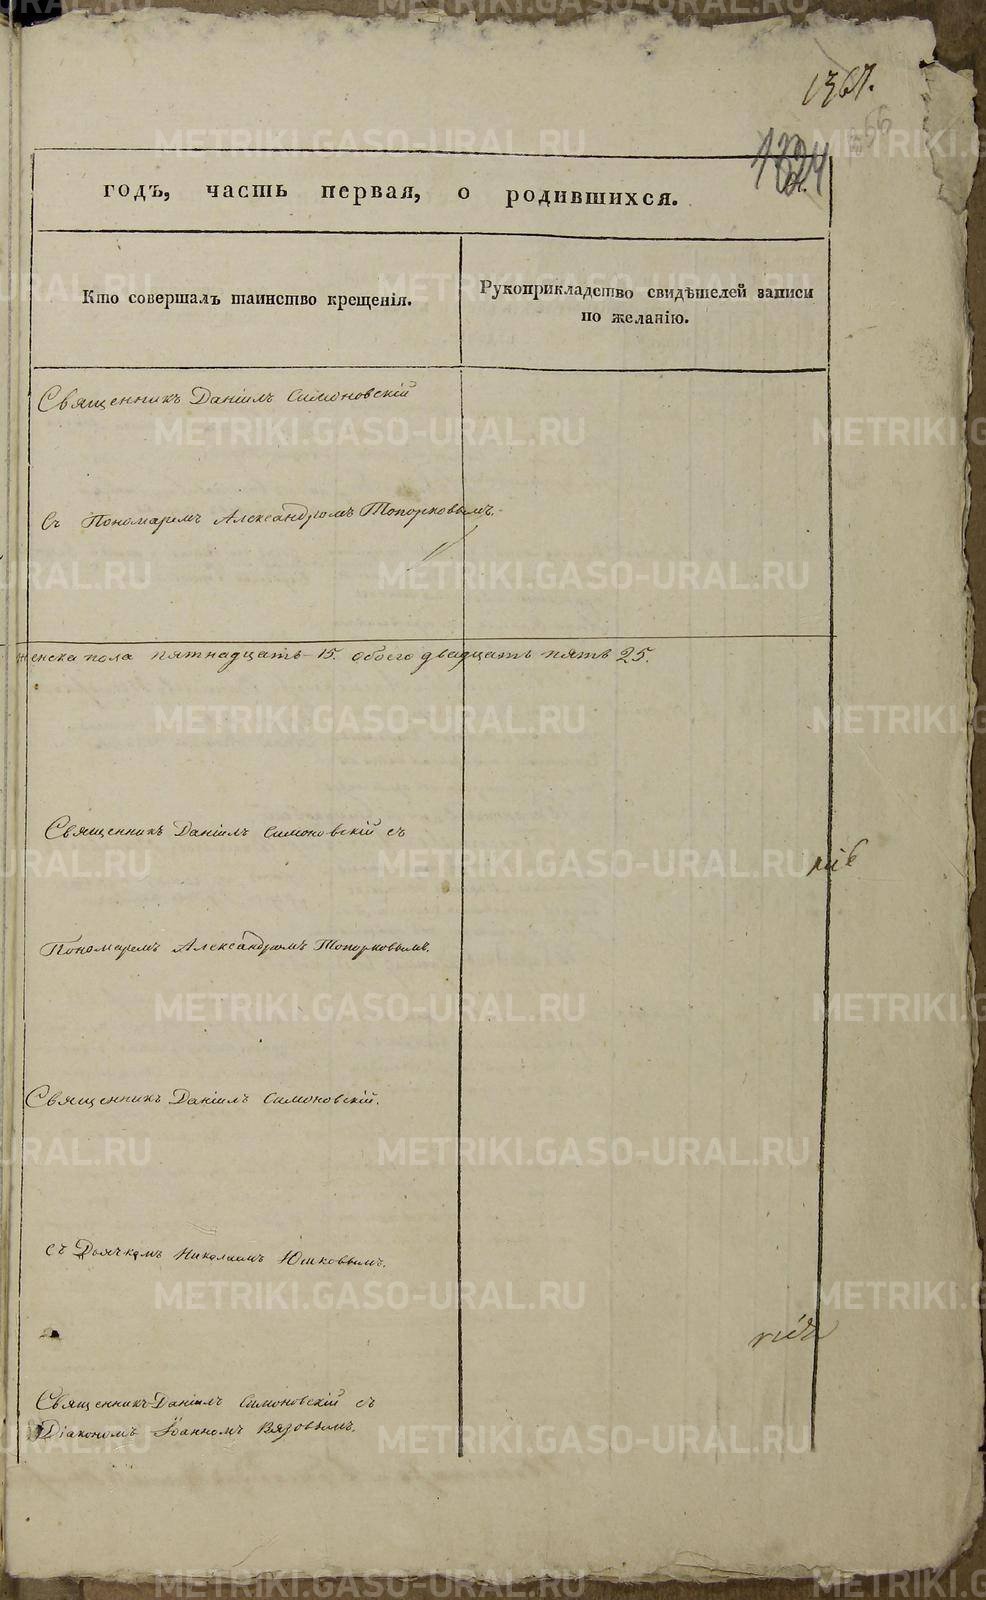 1367.
56
годъ, часть первая, о родившихся.
Кто совершалъ таинство крещенія.
Рукоприкладство свидѣтелей записи
по желанію.
Священникъ Даніилъ Симоновскій
съ Пономаремъ Александромъ Топорковымъ.
женска пола пятнадцать 15. обоего двадцать пять 25.
Священникъ Даніилъ Симоновскій съ
Пономаремъ Александромъ Топорковымъ.
Священникъ Даніилъ Симоновскій.
съ Дьячкомъ Николаемъ Юшковымъ.
Священникъ Даніилъ Симоновскій съ
Діакономъ Іоанномъ Вязовымъ.
METRIKI.GASO-URAL.RU